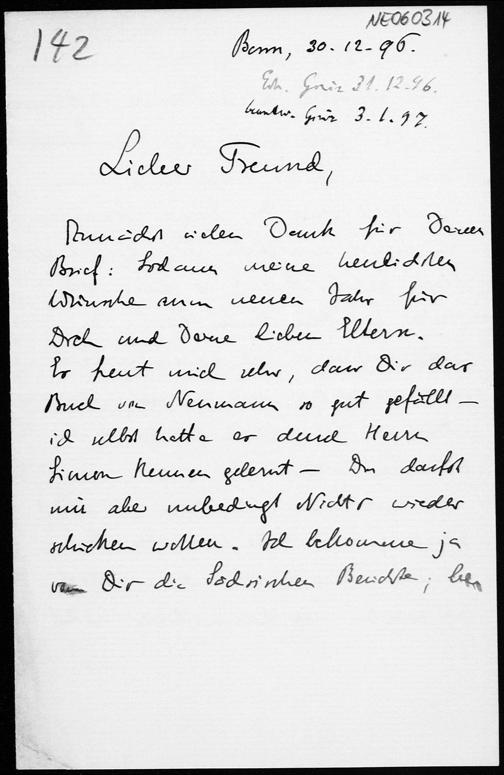 NE060314
142
Bonn, 30.12.96.
Erh. Graz 31.12.96.
beantw. Graz 3.1.97.
Lieber Freund,
Zunächst vielen Dank für Deinen
Brief: Sodann meine herzlichsten
Wünsche zum neuen Jahr für
Dich und Deine lieben Eltern.
Es freut mich sehr, dass Dir das
Buch von Neumann so gut gefällt –
ich selbst hatte es durch Herrn
Simon kennen gelernt – Du darfst
mir aber unbedingt Nichts wieder
schicken wollen. Ich bekomme ja
von Dir die Sächsischen Berichte;